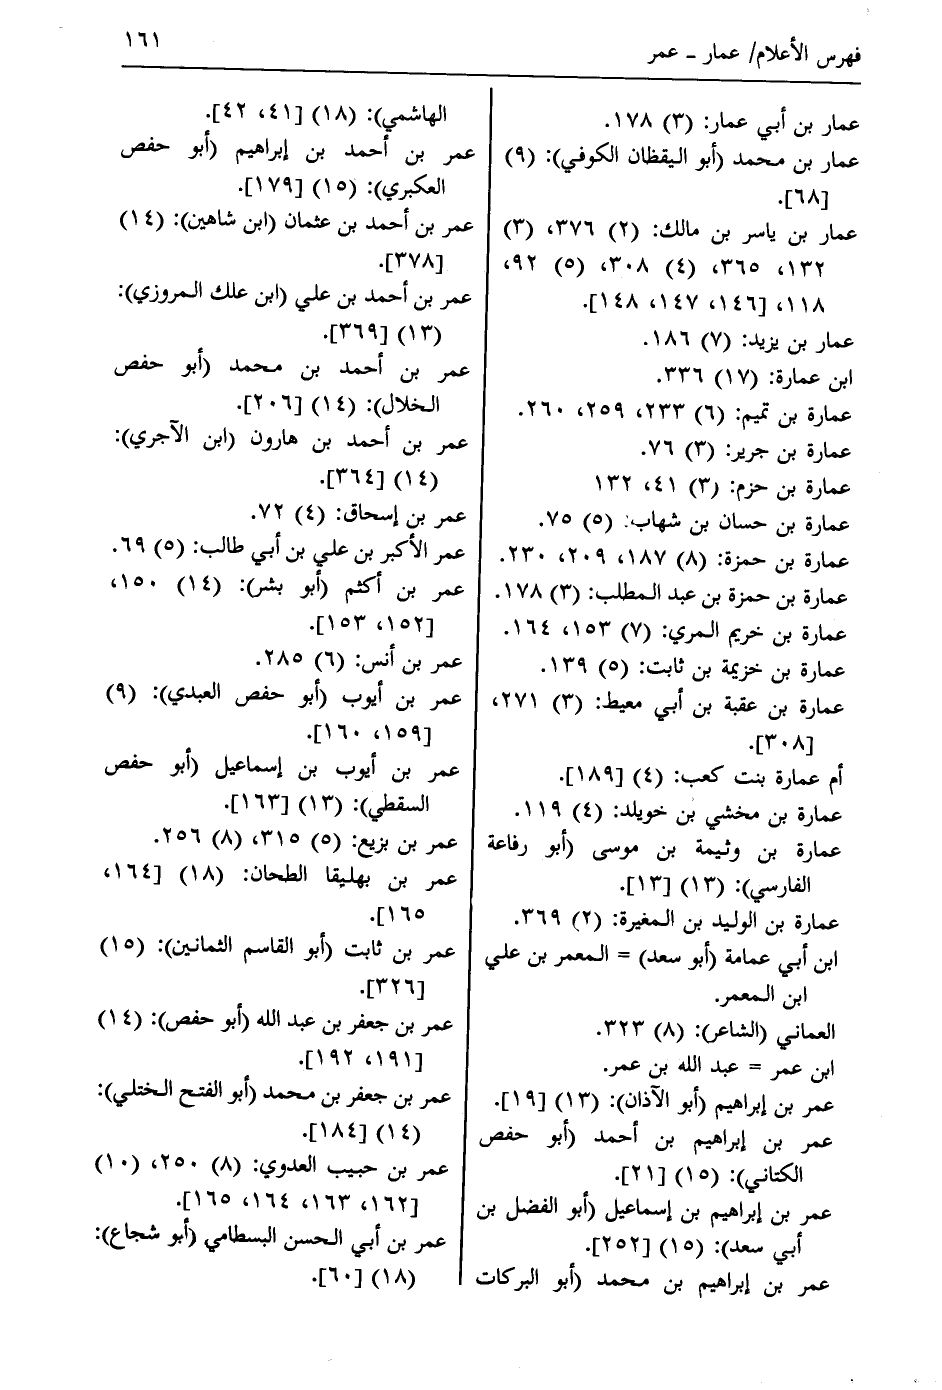 فهرس الأعلام/ عمار - عمر
١٦١
عمار بن أبي عمار: (٣) ١٧٨.
عمار بن محمد (أبو اليقظان الكوفي): (٩)
[٦٨].
عمار بن ياسر بن مالك: (٢) ٣٧٦، (٣)
١٣٢، ٣٦٥، (٤) ٣٠٨، (٥) ٩٢،
١١٨، [١٤٦، ١٤٧، ١٤٨].
عمار بن يزيد: (٧) ١٨٦.
ابن عمارة: (١٧) ٣٣٦.
عمارة بن تميم: (٦) ٢٣٣، ٢٥٩، ٢٦٠.
عمارة بن جرير: (٣) ٧٦.
عمارة بن حزم: (٣) ٤١، ١٣٢
عمارة بن حسان بن شهاب: (٥) ٧٥.
عمارة بن حمزة: (٨) ١٨٧، ٢٠٩، ٢٣٠.
عمارة بن حمزة بن عبد المطلب: (٣) ١٧٨.
عمارة بن خريم المري: (٧) ١٥٣، ١٦٤.
عمارة بن خزيمة بن ثابت: (٥) ١٣٩.
عمارة بن عقبة بن أبي معيط: (٣) ٢٧١،
[٣٠٨].
أم عمارة بنت كعب: (٤) [١٨٩].
عمارة بن مخشي بن خويلد: (٤) ١١٩.
عمارة بن وثيمة بن موسى (أبو رفاعة
الفارسي): (١٣) [١٣].
عمارة بن الوليد بن المغيرة: (٢) ٣٦٩.
ابن أبي عمامة (أبو سعد) = المعمر بن علي
ابن المعمر.
العماني (الشاعر): (٨) ٣٢٣.
ابن عمر = عبد الله بن عمر.
عمر بن إبراهيم (أبو الآذان): (١٣) [١٩].
عمر بن إبراهيم بن أحمد (أبو حفص
الكتاني): (١٥) [٢١].
عمر بن إبراهيم بن إسماعيل (أبو الفضل بن
أبي سعد): (١٥) [٢٥٢].
عمر بن إبراهيم بن محمد (أبو البركات
الهاشمي): (١٨) [٤١، ٤٢].
عمر بن أحمد بن إبراهيم (أبو حفص
العكبري): (١٥) [١٧٩].
عمر بن أحمد بن عثمان (ابن شاهين): (١٤)
[٣٧٨].
عمر بن أحمد بن علي (ابن علك المروزي):
(١٣) [٣٦٩].
عمر بن أحمد بن محمد (أبو حفص
الخلال): (١٤) [٢٠٦].
عمر بن أحمد بن هارون (ابن الآجري):
(١٤) [٣٦٤].
عمر بن إسحاق: (٤) ٧٢.
عمر الأكبر بن علي بن أبي طالب: (٥) ٦٩.
عمر بن أكثم (أبو بشر): (١٤) ١٥٠،
[١٥٢، ١٥٣].
عمر بن أنس: (٦) ٢٨٥.
عمر بن أيوب (أبو حفص العبدي): (٩)
[١٥٩، ١٦٠].
عمر بن أيوب بن إسماعيل (أبو حفص
السقطي): (١٣) [١٦٣].
عمر بن بزيع: (٥) ٣١٥، (٨) ٢٥٦.
عمر بن بهليقا الطحان: (١٨) [١٦٤،
١٦٥].
عمر بن ثابت (أبو القاسم الثمانين): (١٥)
[٣٢٦].
عمر بن جعفر بن عبد الله (أبو حفص): (١٤)
[١٩١، ١٩٢].
عمر بن جعفر بن محمد (أبو الفتح الختلي):
(١٤) [١٨٤].
عمر بن حبيب العدوي: (٨) ٢٥٠، (١٠)
[١٦٢، ١٦٣، ١٦٤، ١٦٥].
عمر بن أبي الحسن البسطامي (أبو شجاع):
(١٨) [٦٠].